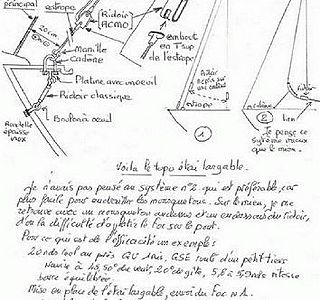 principal
estrope
Ridoir
ACMO
20cm
embout
en T sup
de l'estape
Manille
Cadène
Platine avec un oeil
Ridoir classique
Boulon à oeil
Rondelle
épaisse
inox
Ridoir
repris sur une
cadène
estrope
1
cadène
lien
2
Je pense ce
système mieux
que le mien.
Voila le topo étai largable.
Je n'avais pas pensé au système n°2 qui est préférable, car
plus facile pour endrailler les mousquetons. Sur le mien, je me
retrouve avec un mousqueton au dessus et un en dessous du ridoir,
d'où la difficulté d'appletir le foc sur le pont.
Pour ce qui est de l'efficacité un exemple:
20 nds réel au près GV 1 ris, GSE roulé d'un petit tiers
Navire à 45, 50° du vent, 20° de gîte, 5,6 à 5,9 nds vitesse
barre équilibrée
Mise en place de l'étai largable, envoi du Foc n°1.